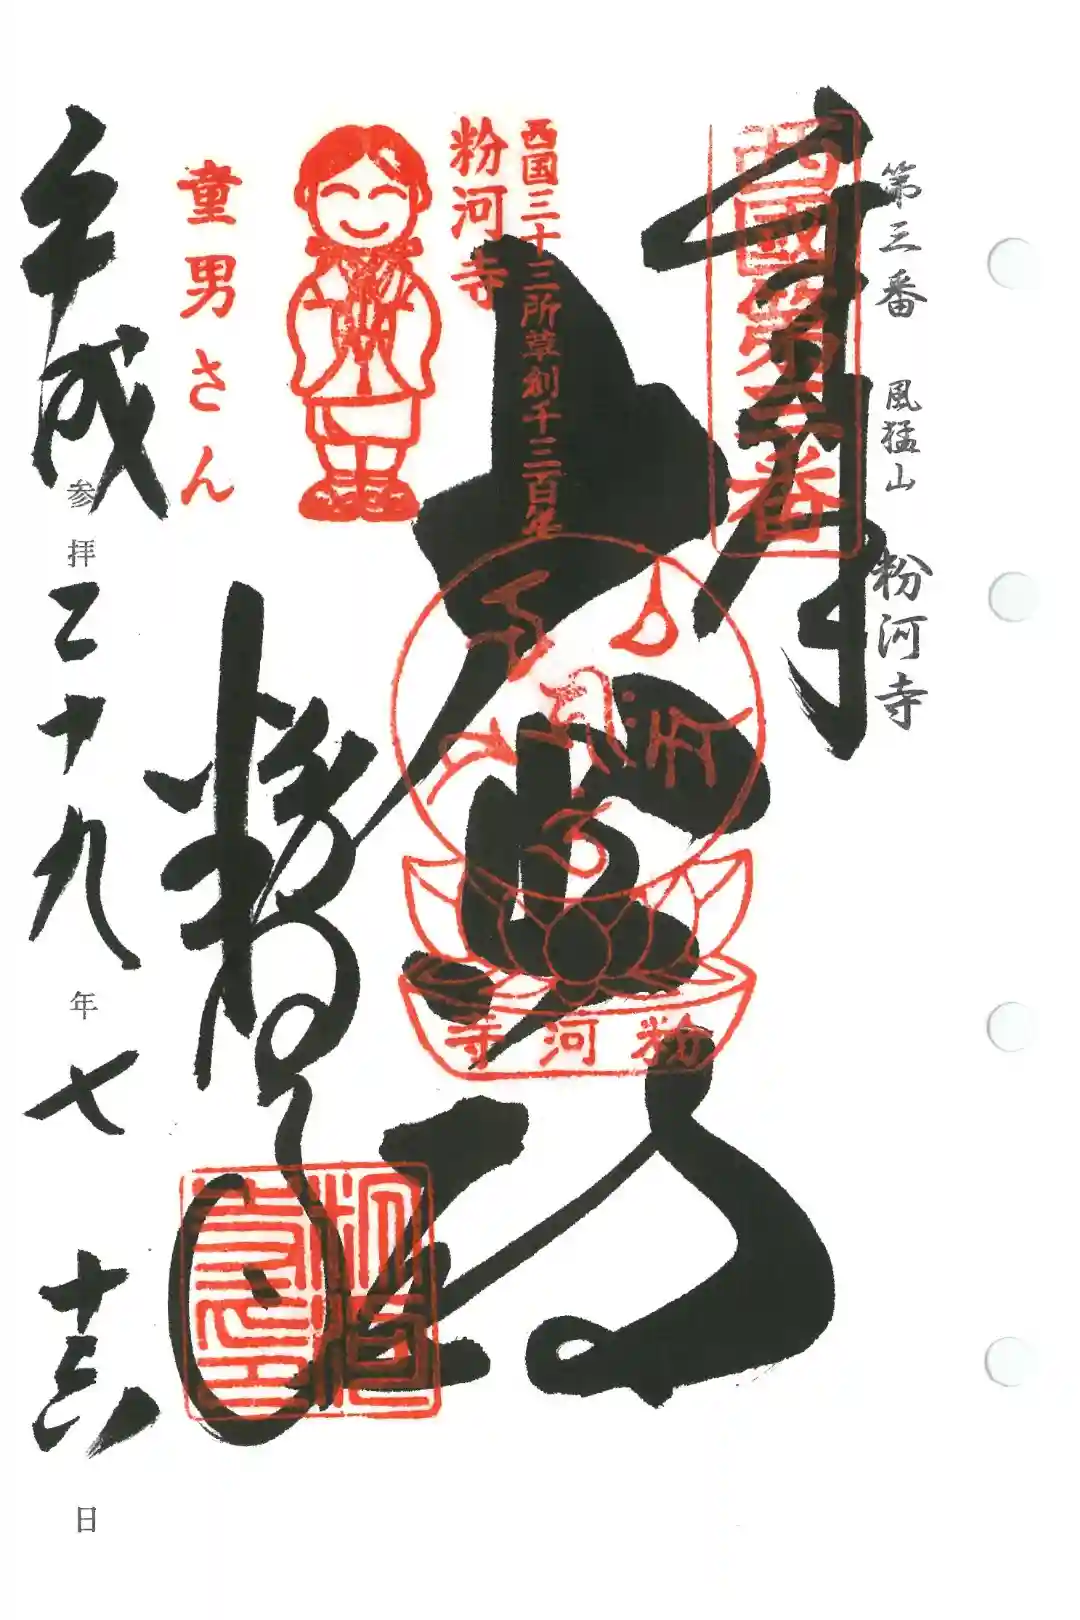 第三番 風猛山 粉河寺
奉拝
西國第三番
大悲殿
西国三十三所草創千三百年
粉河寺
粉河寺
童男さん
粉河寺
粉河寺印
平成二十九年七月十六日
参拝 年 日